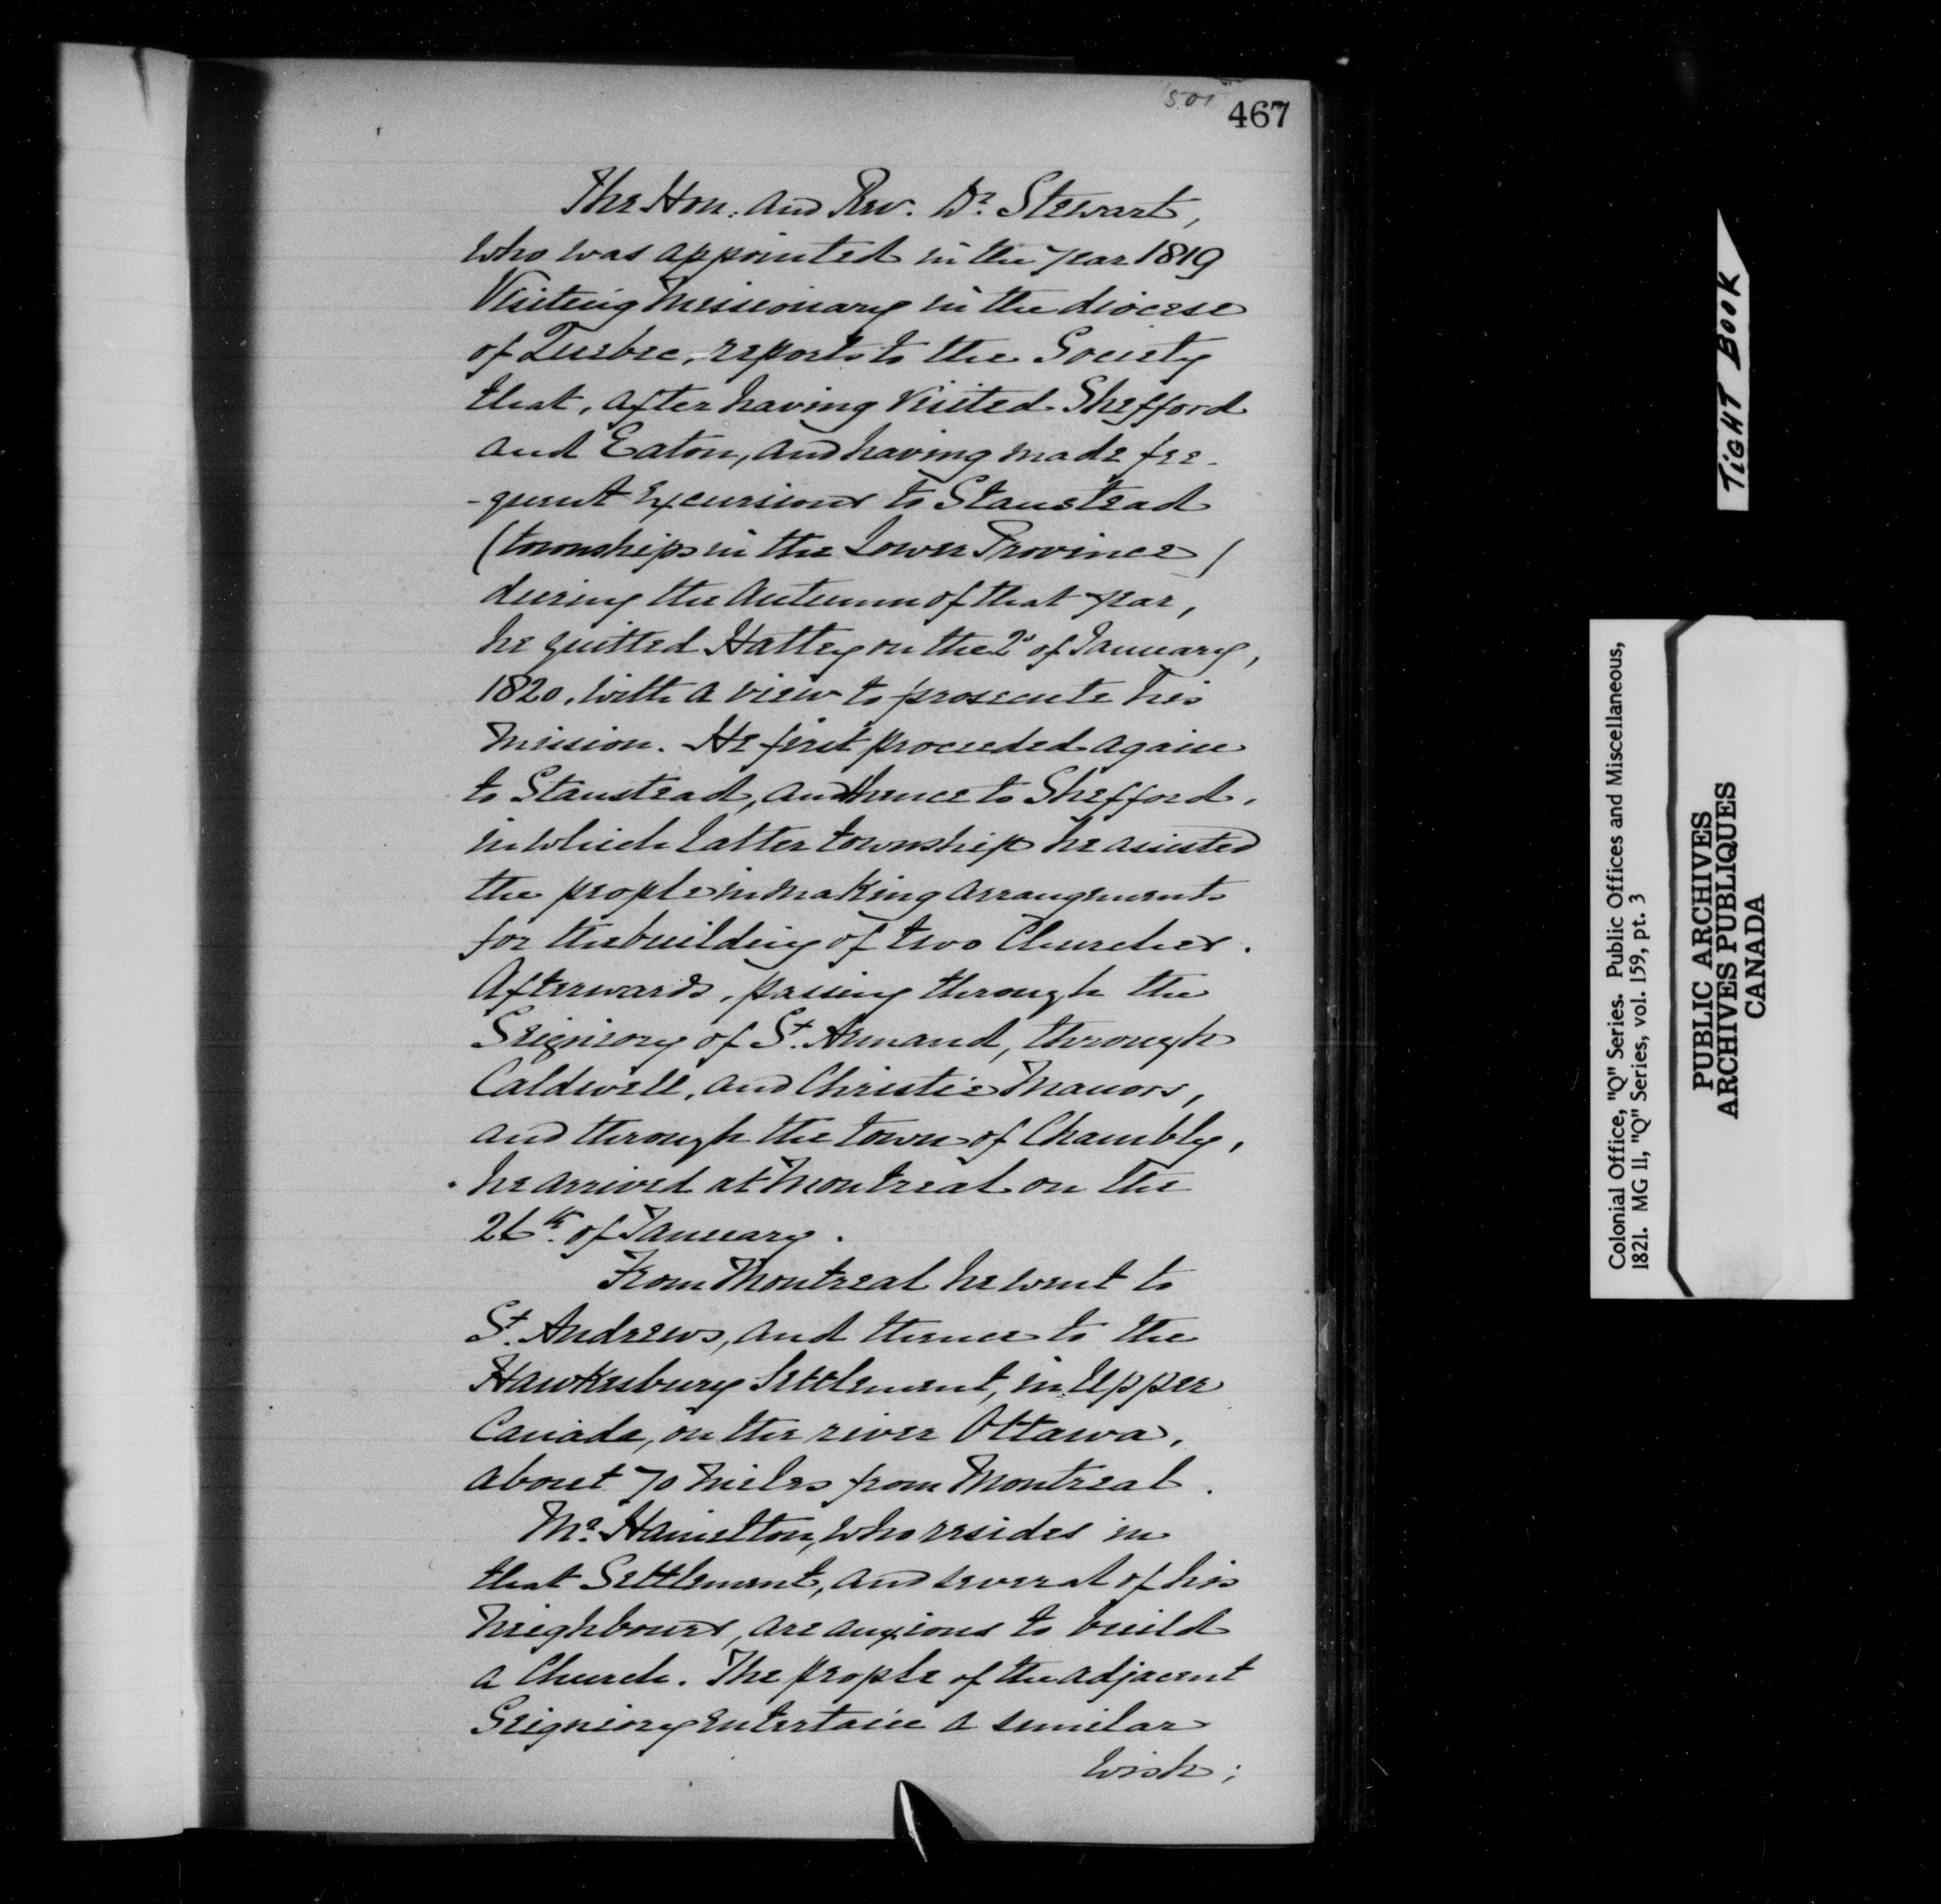 501
467
The Hon. and Rev. Dr. Stewart,
who was appointed in the year 1819
Visiting Missionary in the diocese
of Quebec, reports to the Society
that, after having visited Shefford
and Eaton, and having made fre-
-quent excursions to Stanstead
(townships in the Lower Province)
during the Autumn of that year,
he quitted Hatley on the 2d of January,
1820, with a view to prosecute his
Mission. He first proceeded again
to Stanstead, and thence to Shefford,
in which latter township he assisted
the people in making arrangements
for the building of two Churches.
Afterwards, passing through the
Seigniory of St. Armand, through
Caldwell, and Christie Manors,
and through the town of Chambly,
he arrived at Montreal on the
26th of January.
From Montreal he went to
St. Andrews, and thence to the
Hawkesbury Settlement, in Upper
Canada, on the river Ottawa,
about 70 miles from Montreal.
Mr. Hamilton, who resides in
that Settlement, and several of his
Neighbours, are anxious to build
a Church. The people of the adjacent
Seigniory entertain a similar
wish;
TIGHT BOOK
Colonial Office, "Q" Series. Public Offices and Miscellaneous,
1821. MG 11, "Q" Series, vol. 159, pt. 3
PUBLIC ARCHIVES
ARCHIVES PUBLIQUES
CANADA